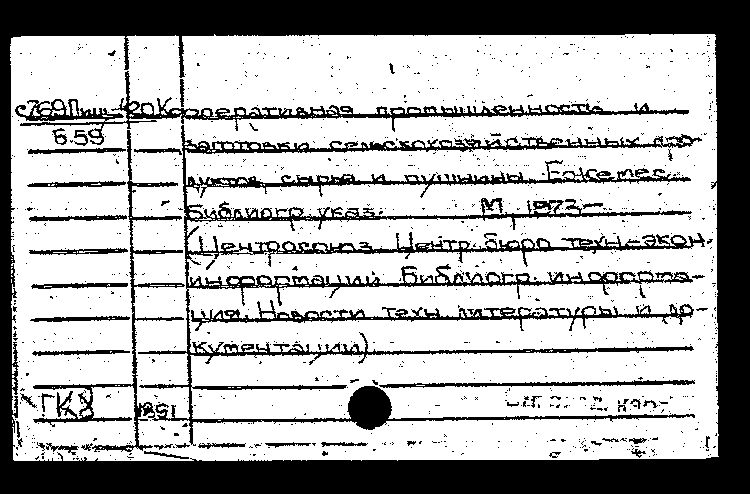 с769Пищ-20 Кооперативная промышленность и
Б59 заготовки сельскохозяйственных про-
дуктов, сырья и пушнины. Ежемес.
библиогр. указ. М., 1973-
(Центросоюз. Центр. бюро техн-экон.
информации. Библиогр. информа-
ция. Новости техн. литературы и до-
кументации)
ГК8 1851